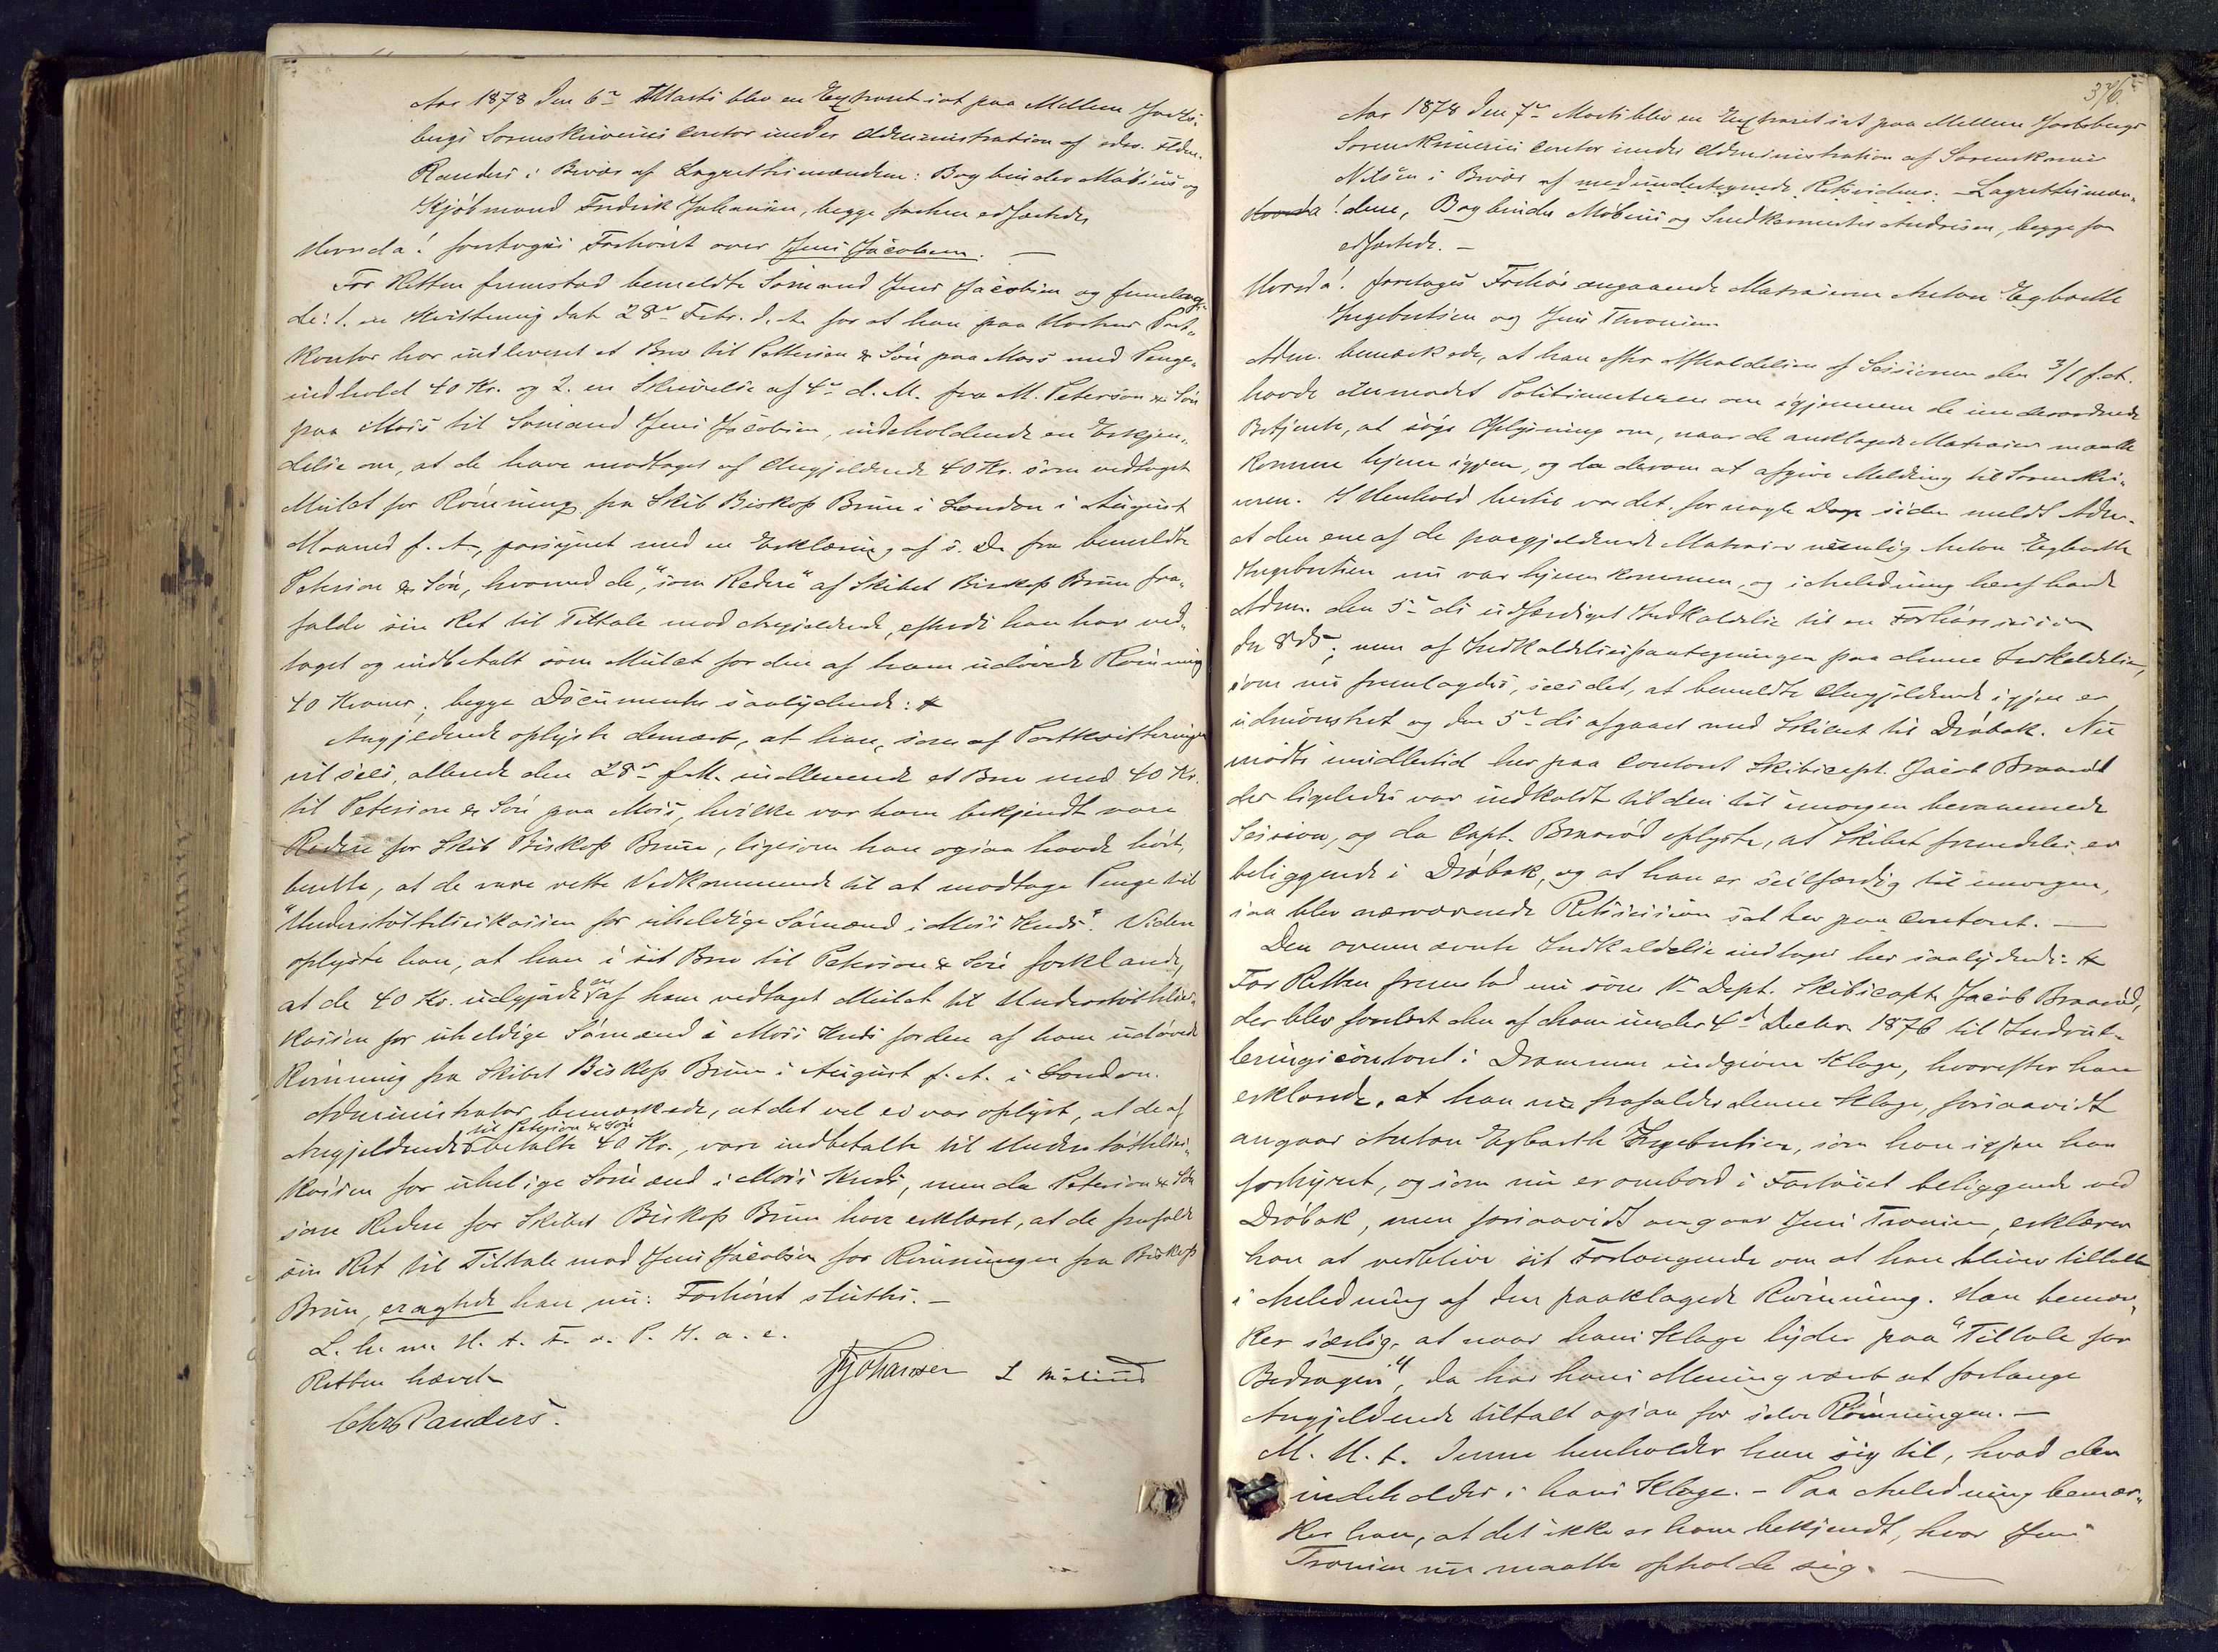 Aar 1878 den 6te Marti blev en Extraret sat paa Mellem Jarls-
bergs Sorenskriveris Contor under Administration af edsv. Fldm.
Randers i Overvær af Lagrettesmændene: Bogbinder Møbius og
Kjøbmand Fredrik Johansen, begge forhen edfæstede
Hvorda! foretoges Forhøret over Jens Jacobsen. —
For Retten fremstod bemeldte Sømand Jens Jacobsen og fremlag-
de: 1. en Kvittering dat 28de Febr. d. A. for at han paa Horten Post-
kontor har indleveret et Brev til Petterson & Søn paa Moss med Penge-
indhold 40 Kr. og 2. en Skrivelse af 4de d. M. fra M. Peterson & Søn
paa Moss til Sømand Jens Jacobsen, indeholdende en Erkjen-
delse om, at de have modtaget af Angjeldende 40 Kr. som vedtaget
Mulct for Rømning fra Skib Biskop Brun i London i August
Maaned f. A., forsynet med en Erklæring af s. D. fra bemeldte
Peterson & Søn, hvorved de, "som Redere" af Skibet Biskop Brun fra-
falde sin Ret til Tiltale mod Angjeldende, efterdi han har ved-
taget og indbetalt som Mulct for den af ham udøvede Rømning
40 Kroner; begge Documenter saalydende: #
Angjeldende oplyste dernæst, at han, som af Postkvitteringen
vil sees, allerede den 28de f. M. indleverede et Brev med 40 Kr.
til Peterson & Søn paa Moss, hvilke var ham bekjendt være
Redere for Skib Biskop Brun, ligesom han ogsaa havde hørt,
berette, at de vare rette Vedkommende til at modtage Penge til
"Understøttelseskassen for uheldige Sømænd i Moss Kreds". Videre
oplyste han, at han i sit Brev til Peterson & Søn forklarede,
at de 40 Kr. udgjorde en af ham vedtaget Mulct til Understøttelses-
kassen for uheldige Sømænd i Moss Kreds for den af ham udøvede
Rømning fra Skibet Biskop Brun i August f. A. i London.
Administrator bemærkede, at det vel ei var oplyst, at de af
Angjeldende til Peterson & Søn betalte 40 Kr., vare indbetalte til Understøttelses-
kassen for uhelige Sømænd i Moss Kreds, men da Peterson & Søn
som Redere for Skibet Biskop Brun have erklæret, at de frafalde
sin Ret til Tiltale mod Jens Jacobsen for Rømningen fra Biskop
Brun, eragtede han nu: Forhøret sluttes. —
Retten hævet
Chr Randers.
FJohansen L Møbius
376.
Aar 1878 den 7de Marti blev en Extraret sat paa Mellem Jarlsbergs
Sorenskriveris Contor under Administration af Sorenskriver
Nilsen i Overvær af medundertegnede Retsvidner: Lagrettesmæn-
Hvorda! dene, Bogbinder Møbius og Smedkermester Andresen, begge for
edfæstede. —
Hvorda! foretoges Forhør angaaende Matroserne Anton Egbarth
Ingebretsen og Jens Thronsen
Adm. bemærkede, at han efter Afholdelsen af Sessionen den 3/1 f. A.
havde anmodet Politimesteren om igjennem de underordnede
Betjente, at søge Oplysning om, naar de anklagede Matroser maatte
komme hjem igjen, og da derom at afgive Melding til Sorenskri-
veren. I Henhold hertil var det for nogle Dage siden meldt Adm.
at den ene af de paagjeldende Matroser nemlig Anton Egbarth
Ingebretsen nu var hjem kommen, og i Anledning heraf havde
Adm. den 5te ds udfærdiget Indkaldelse til en Forhørssession
den 8 ds; men af Indkaldelsespaategningen paa denne Indkaldelse,
som nu fremlagdes, sees det, at bemeldte Angjeldende igjen er
udmønstret og den 5te ds afgaaet med Skibet til Drøbak. Nu
mødte imidlertid her paa Contoret Skibscapt. Jacob Braarød
der ligeledes var indkaldt til den til imorgen berammede
Session, og da Capt. Braarød oplyste, at Skibet fremdeles er
beliggende i Drøbak, og at han er seilfærdig til imorgen,
saa blev nærværende Retssession sat her paa Contoret. —
Den ovennævnte Indkaldelse indtages her saalydende: #
For Retten fremstod nu som 1te Dept. Skibscapt. Jacob Braarød,
der blev forelæst den af ham under 4de Decbr 1876 til Indrul-
leringscontoret i Drammen indgivne Klage, hvorefter han
erklærede, at han nu frafalder denne Klage, forsaavidt
angaar Anton Egbarth Ingebretsen, som han igjen har
forhyret, og som nu er ombord i Fartøiet beliggende ved
Drøbak, men forsaavidt angaar Jens Tronsen, erklærer
han at vedblive sit Forlangende om at han bliver tiltalt
i Anledning af den paaklagede Rømning. Han bemær-
ker særlig, at naar hans Klage lyder paa "Tiltale for
Bedrageri", da har hans Mening været at forlange
Angjeldende tiltalt ogsaa for selve Rømningen. —
M. H. t. denne henholder han sig til, hvad der
indeholdes i hans Klage. — Paa Anledning bemær-
ker han, at det ikke er ham bekjendt, hvor Jens
Tronsen nu maatte opholde sig. —